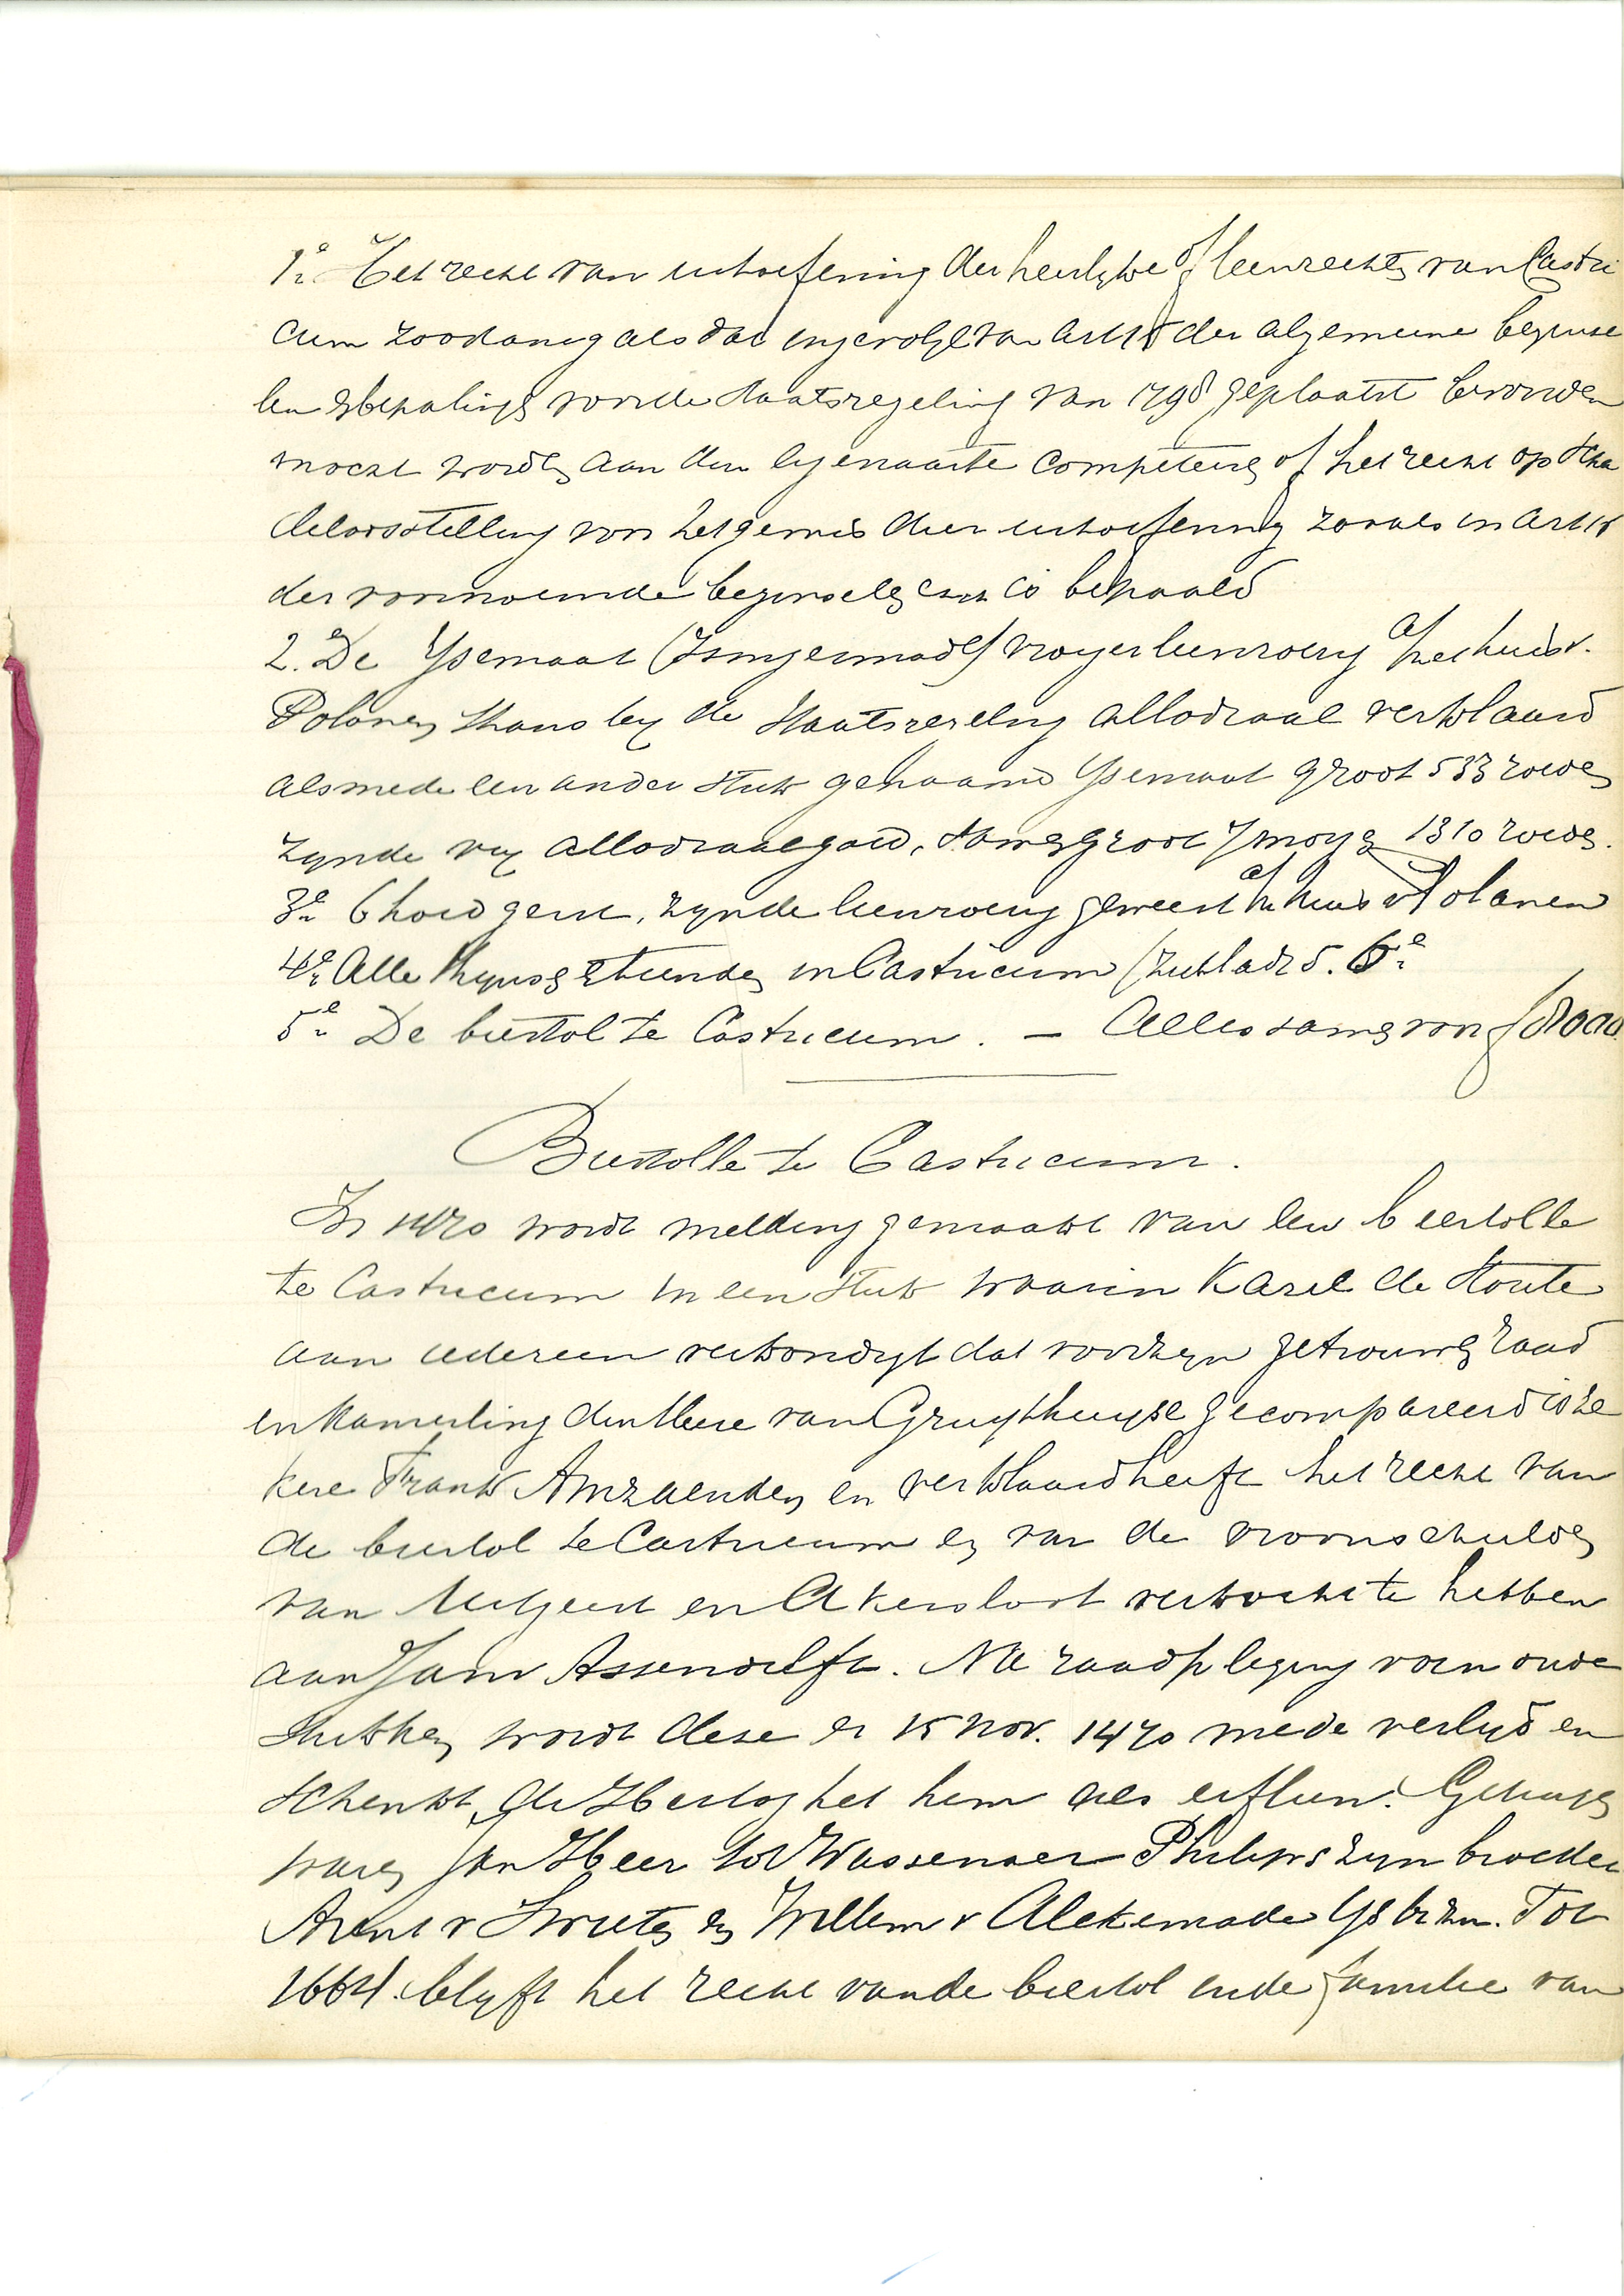 1e. Het recht van uitoefening der heerlyke of leenrechten van Castri
cum zoodanig als dat ingevolge van Art 18 der algemeene beginse
len & bepalingen voor de Staatsregeling van 1798 geplaatst bevonden
mocht worden aan den eigenaar te competeeren of het recht op scha
deloosstelling voor het gemis dier uitoefening zooals in Art 18
der voornoemde beginselen enz is bepaald
2.e De Ysemaat (Isingermade) vroger leenroerig a/ het huis v.
Polanen thans by de Staatsregeling allodiaal verklaard
alsmede een ander stuk genaamd Ysemaat groot 533 roeden
zynde vry allodiaal goed, samen groot 7 morgen 1310 roeden.
3e. 6 hond geest, zynde leenroerig geweest a/ h huis v Polanen
4e. Alle thynsen & tienden in Castricum (zie bladz 5. 6e.
5e. De biertol te Castricum. — Alles samen voor f 8000.
Biertolle te Castricum.
In 1470 wordt melding gemaakt van een biertolle
te Castricum in een stuk waarin Karel de Stoute
aan iedereen verkondigt dat voor zyn getrouwen raad
en kamerling den Heer van Gruythuyse gecompareerd is ze
kere Frank Amzaenden en verklaard heeft het recht van
de biertol te Castricum en van de vroonschulden
van Uitgeest en Akersloot verkocht te hebben
aan Jan v Assendelft. Na raadpleging van oude
stukken wordt deze er 15 Nov. 1470 mede verlyd en
schenkt de Hertog het hem als erfleen. Getuigen
waren Jan Heer tot Wassenaer Philips zyn broeder
Arent v Swieten en Willem v Alckemade Ysbr zn. Tot
1664 blyft het recht van de biertol in de familie van